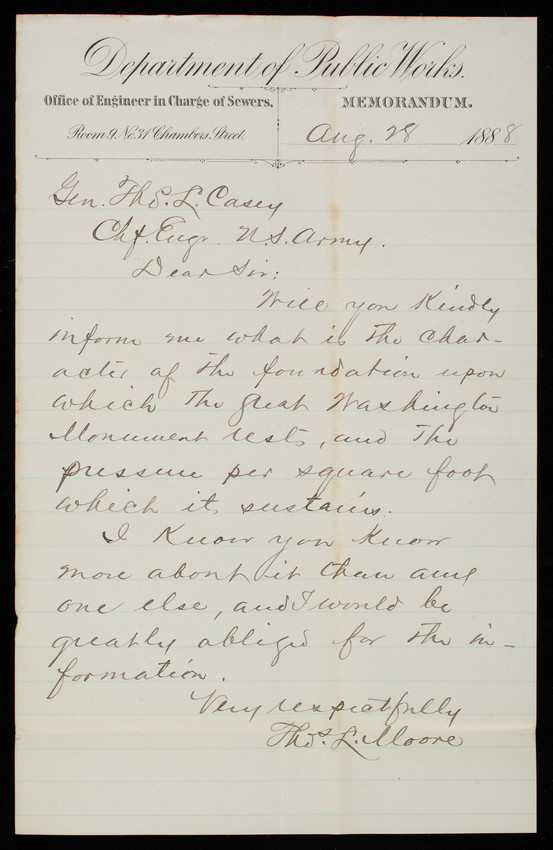 Department of Public Works.
Office of Engineer in Charge of Sewers.
MEMORANDUM.
Room 9, No. 31 Chambers Street.
Aug. 28 1888
Gen. Thos. L. Casey
Chf. Engr. U.S. Army.
Dear Sir:
Will you Kindly
inform me what is the char-
acter of the foundation upon
which the great Washington
Monument rests, and the
pressure per square foot
which it sustains.
I Know you Know
more about it than any
one else, and I would be
greatly obliged for the in-
formation.
Very respectfully
Thos. L. Moore